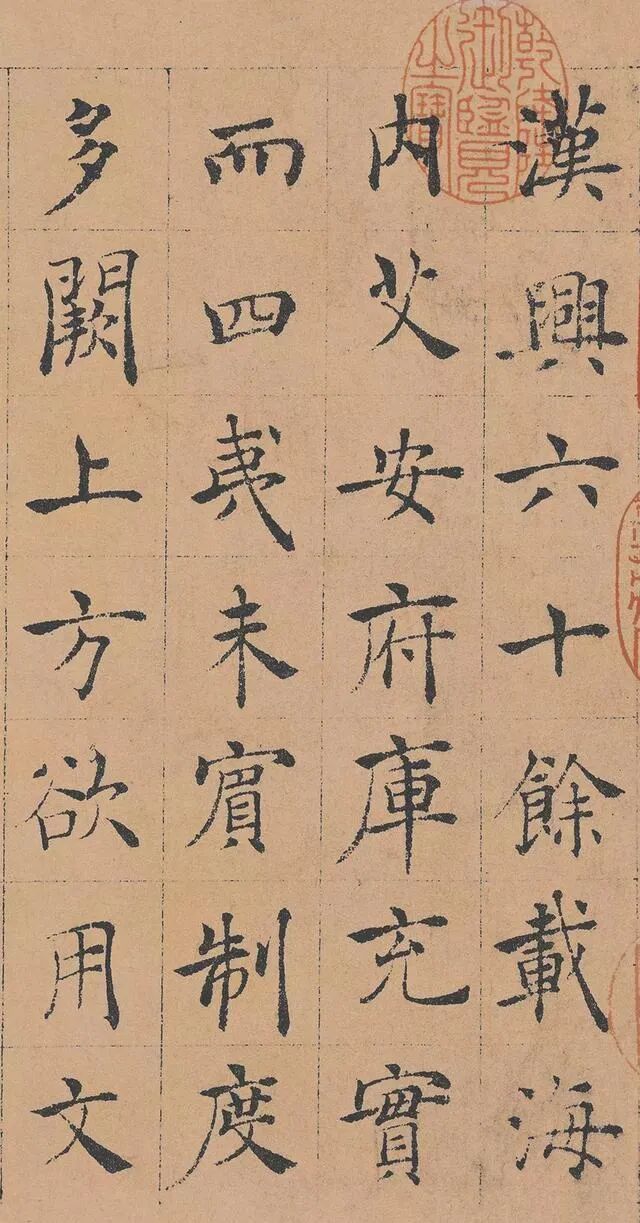 漢興六十餘載海
内艾安府庫充實
而四夷未賓制度
多闕上方欲用文
乾隆御覽之寶